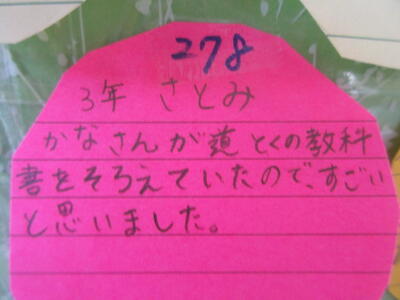 278
3年 さとみ
かなさんが道とくの教科
書をそろえていたので、すごい
と思いました。